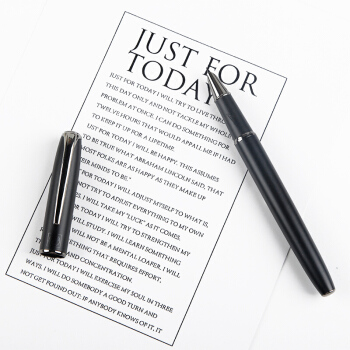 JUST FOR
TODAY
JUST FOR TODAY I WILL TRY TO LIVE THRO
THIS DAY ONLY AND NOT TACKLE MY WHOLE
PROBLEM AT ONCE. I CAN DO SOMETHING FOR
TWELVE HOURS THAT WOULD APPALL ME IF I HAD
TO KEEP IT UP FOR A LIFETIME.
UST FOR TODAY I WILL BE HAPPY. THIS ASSUMES
TO BE TRUE WHAT ABRAHAM LINCOLN SAID, THAT
MOST FOLKS ARE AS HAPPY AS THEY MAKE UP
EIR MINDS TO BE."
ADJUST MYSELF TO WHAT IS,
NOT TRY TO ADJUST EVERYTHING TO MY OWN
I WILL TAKE MY "LUCK" AS IT COMES.
FOR TODAY I WILL TRY TO STRENGTHEN MY
WILL STUDY. I WILL LEARN SOMETHING
WILL NOT BE A MENTAL LOAFER. I WILL
ETHING THAT REQUIRES EFFORT,
AND CONCENTRATION.
JUST FOR TODAY I WILL EXERCISE MY SOUL IN THREE
WAYS. I WILL DO SOMEBODY A GOOD TURN AND
NOT GET FOUND OUT: IF ANYBODY KNOWS OF IT, IT